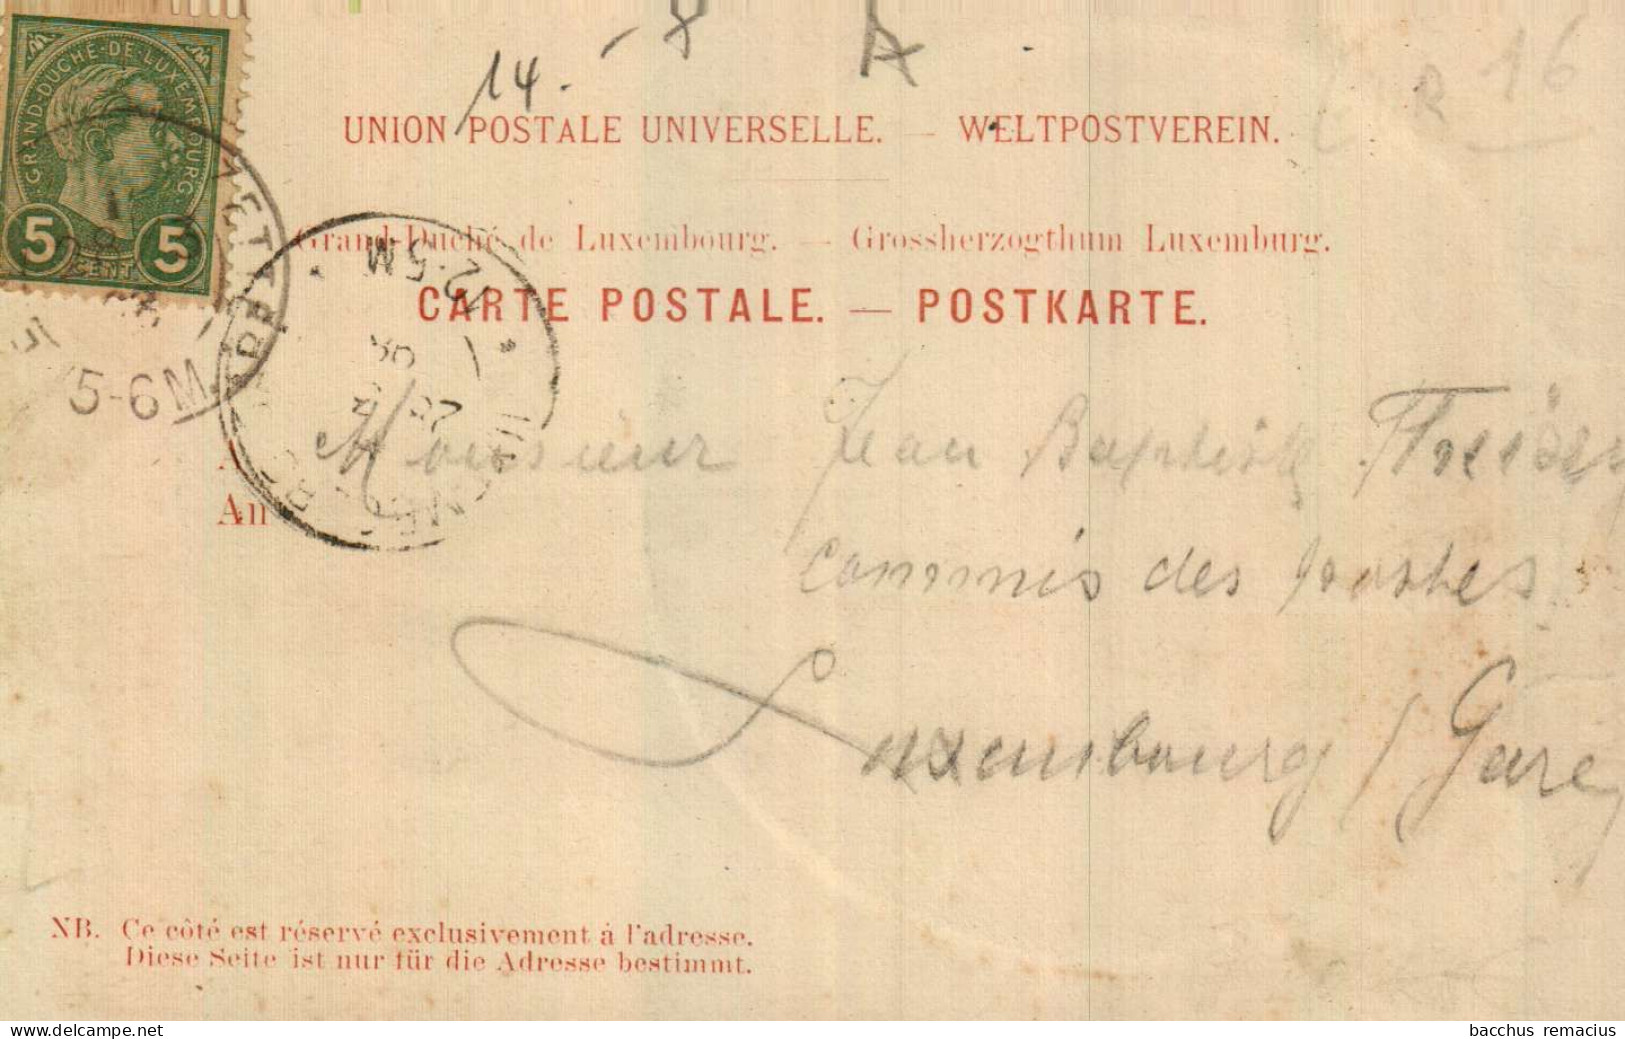 14.
16
GRAND-DUCHÉ-DE-LUXEMBOURG
5 CENT 5
UNION POSTALE UNIVERSELLE. — WELTPOSTVEREIN.
Grand-Duché de Luxembourg. — Grossherzogthum Luxemburg.
CARTE POSTALE. — POSTKARTE.
12-5M
5-6M
Monsieur Jean Baptiste
An
commis des postes
Luxembourg / Gare
NB. Ce côté est réservé exclusivement à l'adresse.
Diese Seite ist nur für die Adresse bestimmt.
delcampe.net
bacchus remacius